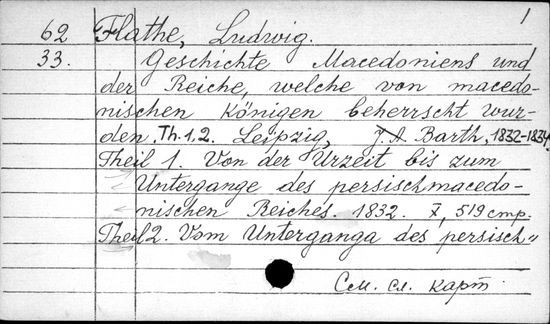 1
62 Flathe, Ludwig.
33. Geschichte Macedoniens und
der Reiche, welche von macedo-
nischen Königen beherrscht wur-
den. Th. 1, 2. Leipzig, J. A. Barth, 1832-1834.
Theil 1. Von der Urzeit bis zum
Untergange des persischmacedo-
nischen Reiches. 1832. X, 519 стр.
Theil 2. Vom Unterganga des „persisch"
См. сл. карт